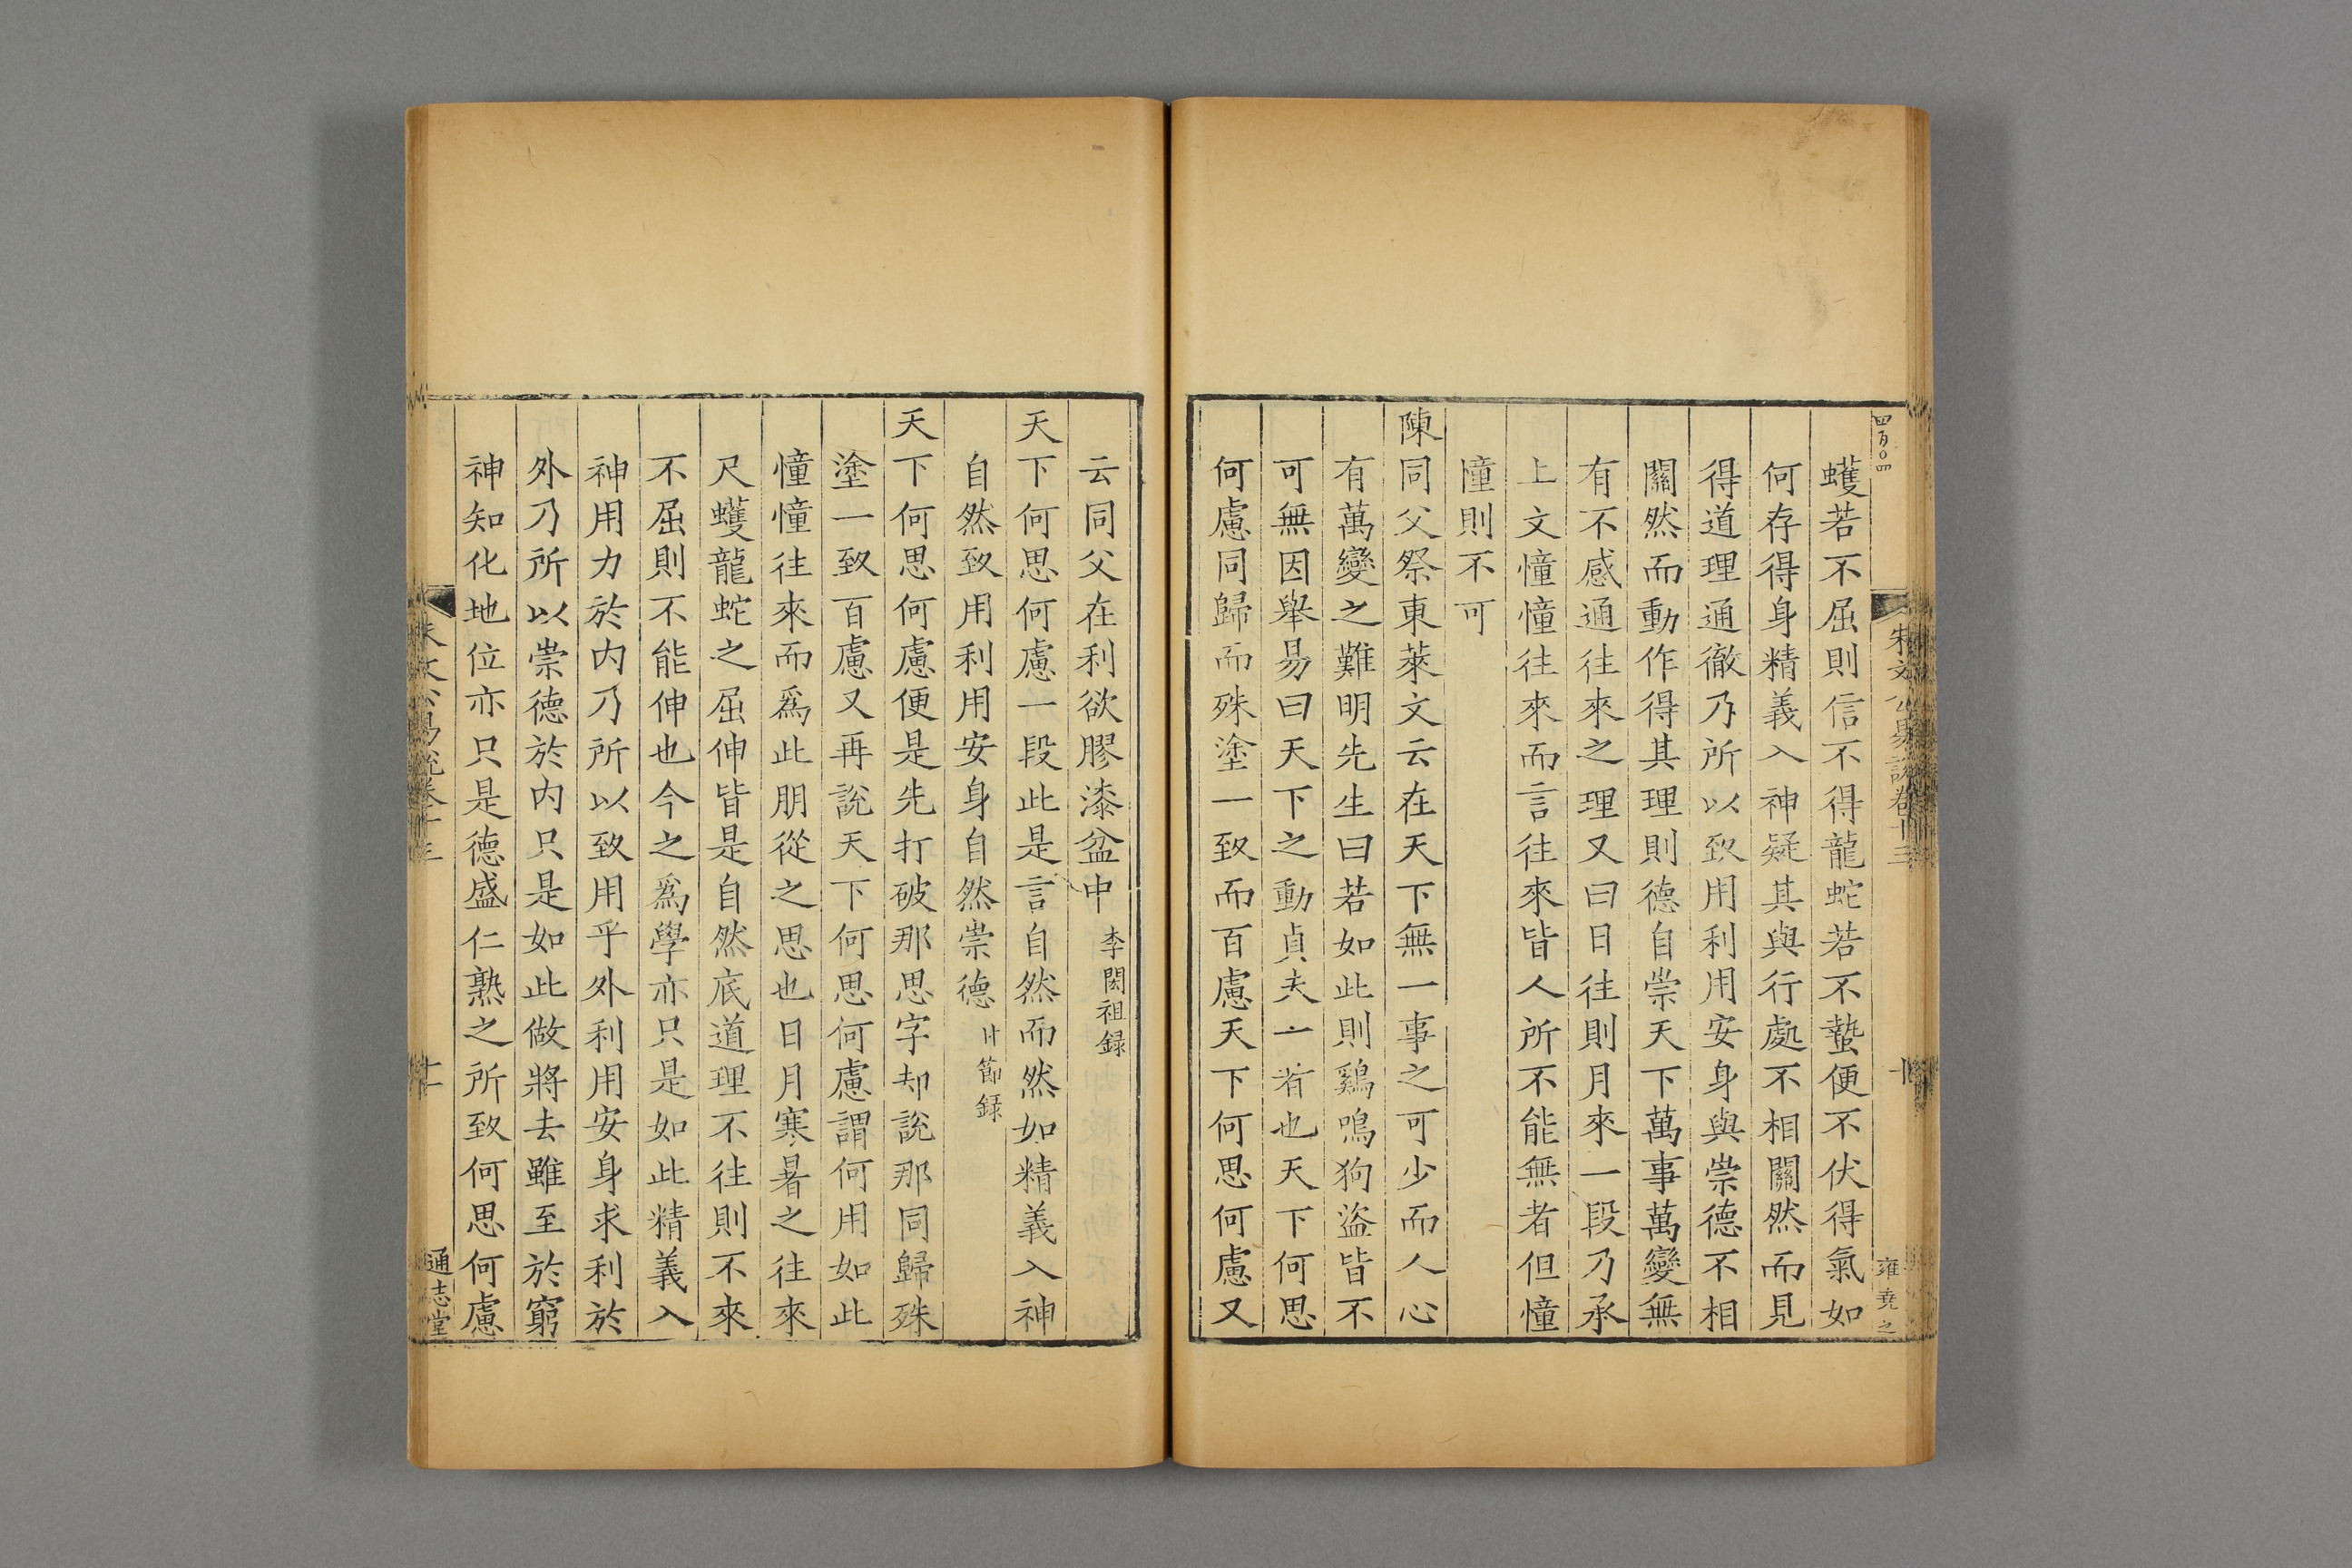 四百〇四
朱文公易說卷十三
雍尭之
蠖若不屈則信不得龍蛇若不蟄便不伏得氣如
何存得身精義入神疑其與行處不相關然而見
得道理通徹乃所以致用利用安身與崇德不相
關然而動作得其理則德自崇天下萬事萬變無
有不感通往來之理又曰日往則月來一段乃承
上文憧憧往來而言往來皆人所不能無者但憧
憧則不可
陳同父祭東萊文云在天下無一事之可少而人心
有萬變之難明先生曰若如此則鷄鳴狗盜皆不
可無因舉易曰天下之動貞夫一者也天下何思
何慮同歸而殊塗一致而百慮天下何思何慮又
云同父在利欲膠漆盆中李閎祖録
天下何思何慮一段此是言自然而然如精義入神
自然致用利用安身自然崇德甘節録
天下何思何慮便是先打破那思字却說那同歸殊
塗一致百慮又再說天下何思何慮謂何用如此
憧憧往來而爲此朋從之思也日月寒暑之往來
尺蠖龍蛇之屈伸皆是自然底道理不往則不來
不屈則不能伸也今之爲學亦只是如此精義入
神用力於内乃所以致用乎外利用安身求利於
外乃所以崇德於内只是如此做將去雖至於窮
神知化地位亦只是德盛仁熟之所致何思何慮
朱文公易說卷十三
十一
通志堂